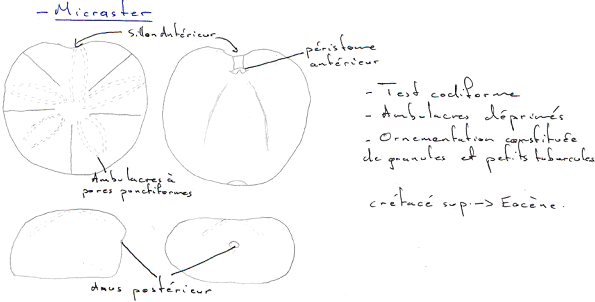 - Micraster
Sillon Antérieur
péristome
antérieur
- Test codiforme
- Ambulacres déprimés
- Ornementation constituée
de granules et petits tubercules
Ambulacres à
pores ponctiformes
crétacé sup. -> Eocène.
Anus postérieur